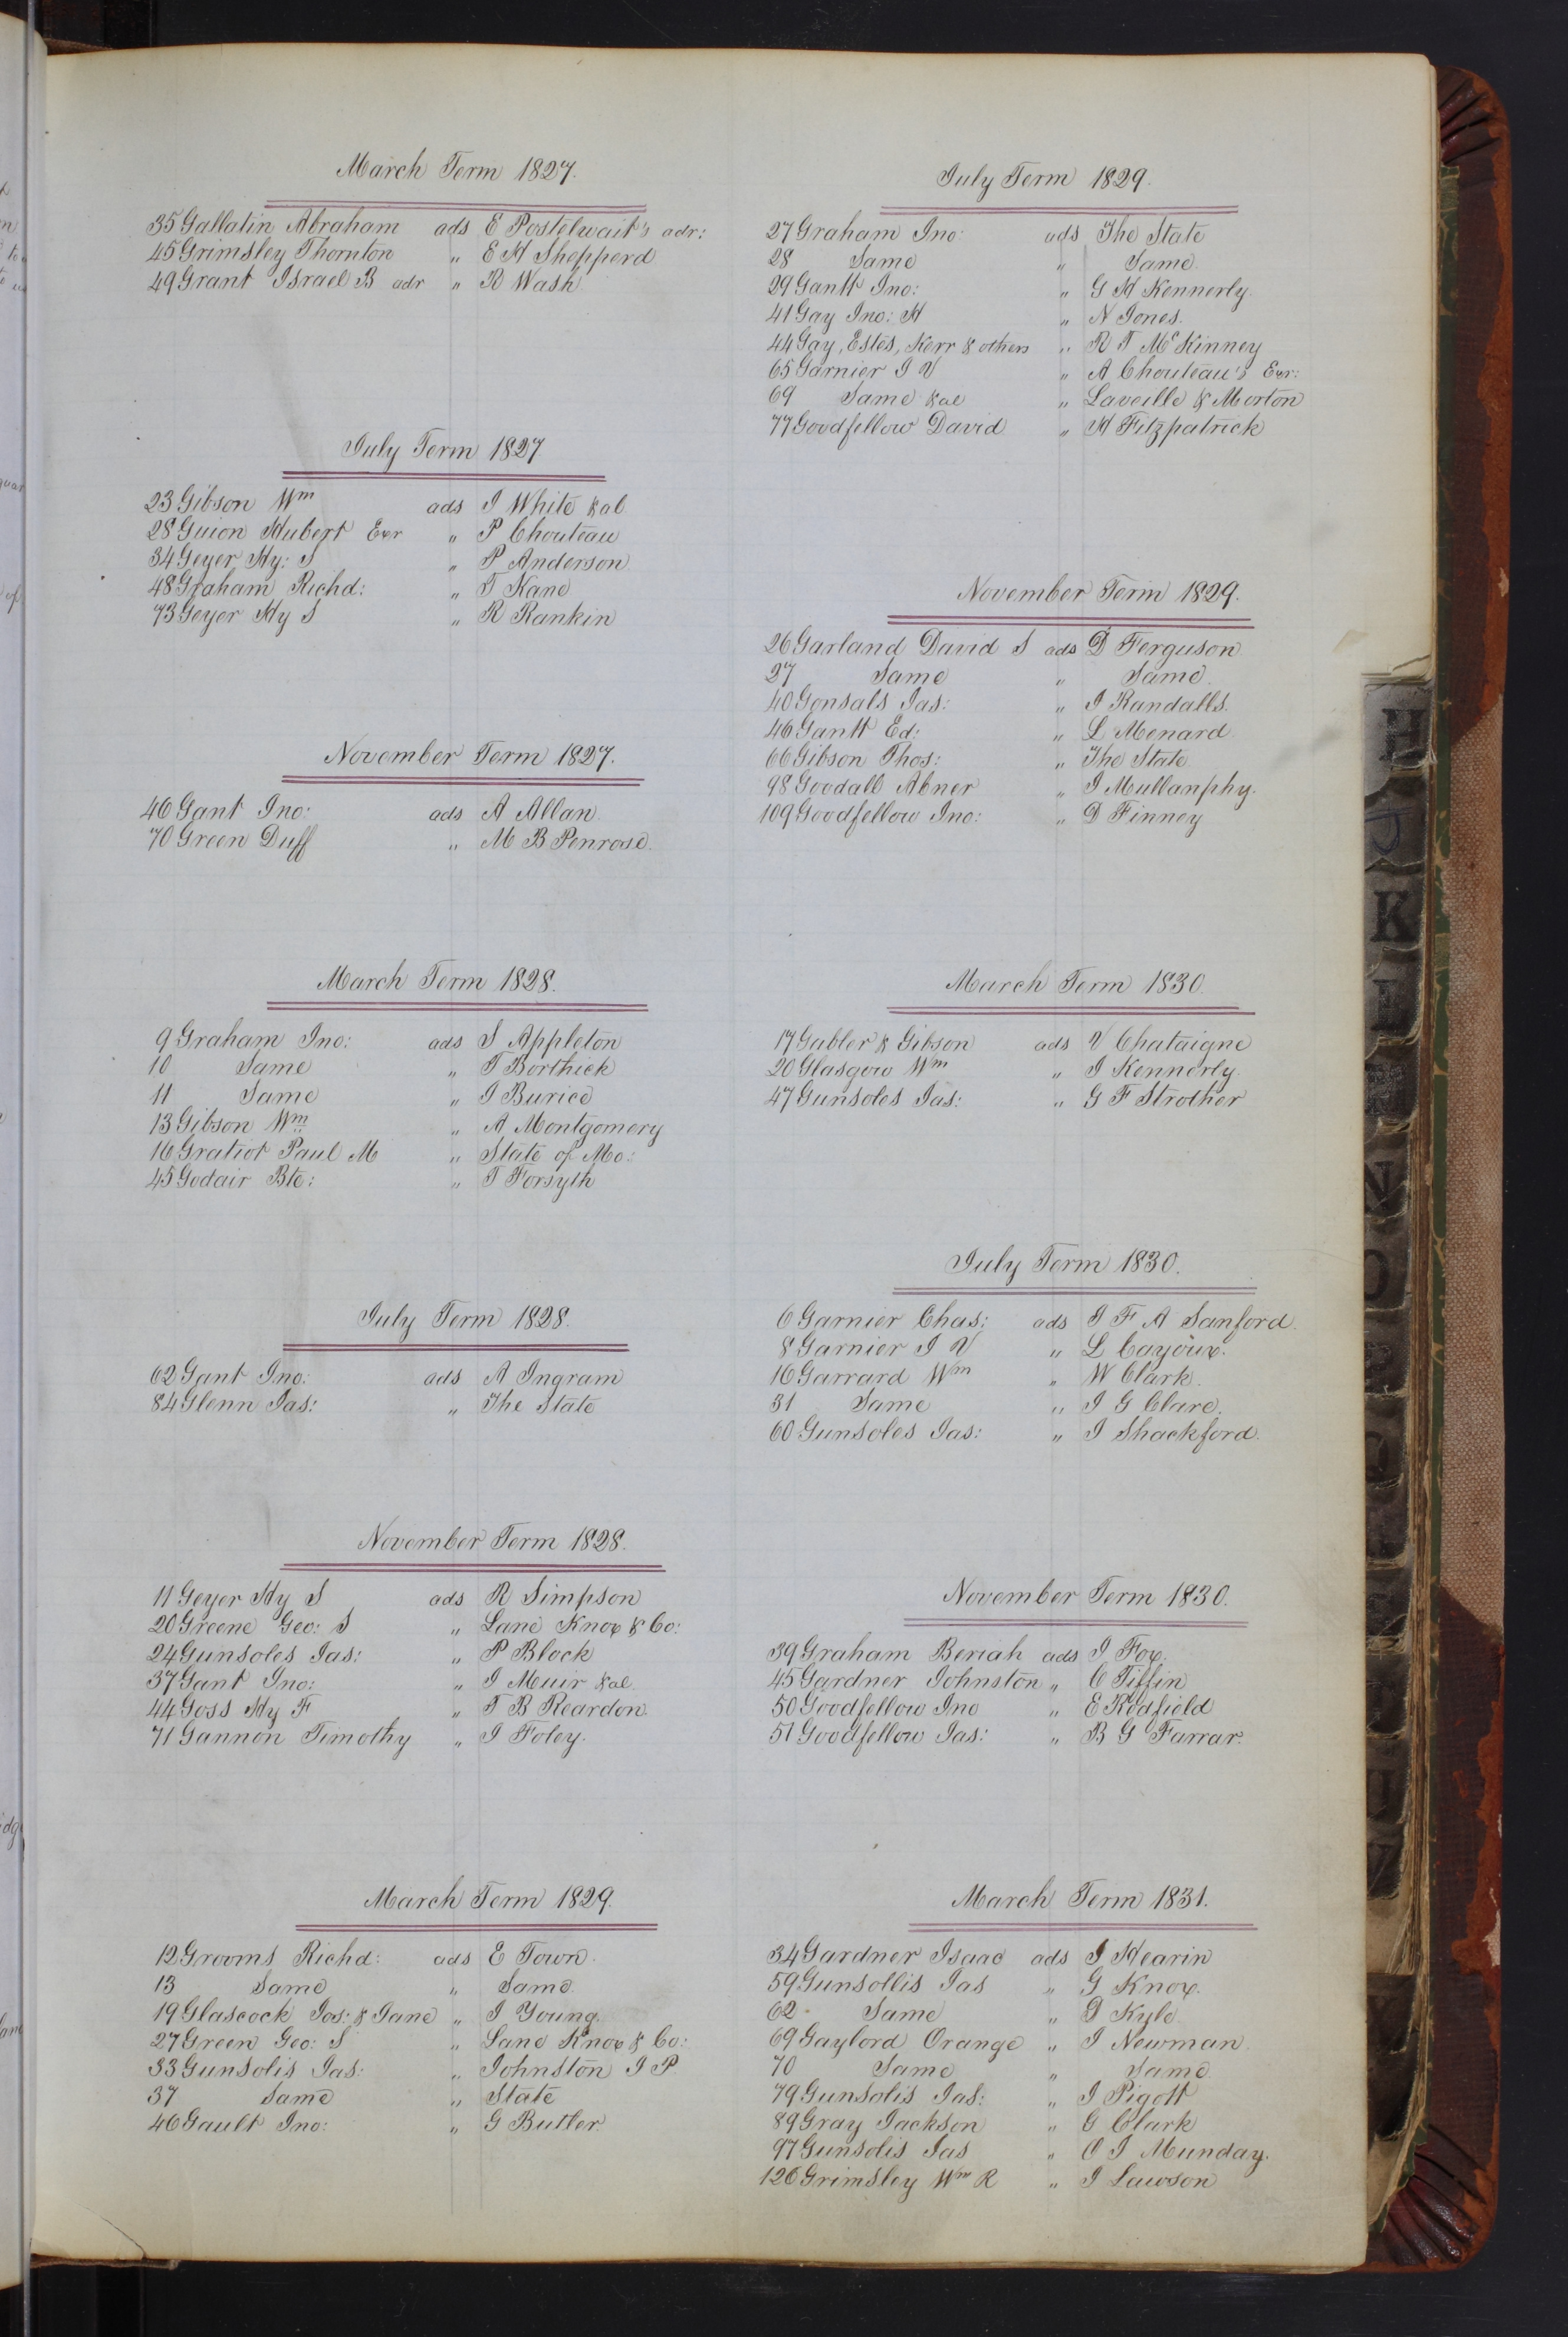 March Term 1827.
35 Gallatin Abraham ads E Postelwait's adr:
45 Grimsley Thornton " E H Shepperd
49 Grant Israel B adr " R Wash
July Term 1827
23 Gibson Wm ads J White & al
28 Guion Hubert Exr " P Chouteau
34 Geyer Hy: S " P Anderson
48 Graham Richd: " T Kane
73 Geyer Hy S " R Rankin
November Term 1827.
46 Gant Jno: ads A Allan.
70 Green Duff " M B Penrose.
March Term 1828.
9 Graham Jno: ads S Appleton
10 Same " T Borthick
11 Same " J Burice
13 Gibson Wm " A Montgomery
16 Gratiot Paul M " State of Mo:
45 Godair Bte: " T Forsyth
July Term 1828.
62 Gant Jno: ads A Ingram
84 Glenn Jas: " The State
November Term 1828.
11 Geyer Hy S ads R Simpson
20 Greene Geo: S " Lane Knox & Co:
24 Gunsoles Jas: " P Block
37 Gant Jno: " J Muir & al.
44 Goss Hy F " T B Reardon.
71 Gannon Timothy " J Foley.
March Term 1829.
12 Grooms Richd: ads E Town.
13 Same " Same.
19 Glascock Jos: & Jane " J Young.
27 Green Geo: S " Lane Knox & Co:
33 Gunsolis Jas: " Johnston J P.
37 Same " State
46 Gault Jno: " G Butler.
July Term 1829.
27 Graham Jno: ads The State
28 Same " Same.
29 Gantt Jno: " G H Kennerly.
41 Gay Jno: H " N Jones.
44 Gay, Estes, Kerr & others " R T McKinney
65 Garnier J V " A Chouteau's Exr:
69 Same & al " Laveille & Morton
77 Goodfellow David " H Fitzpatrick
November Term 1829.
26 Garland David S ads D Ferguson
27 Same " Same.
40 Gonsals Jas: " J Randalls.
46 Gantt Ed: " L Menard.
66 Gibson Thos: " The State
98 Goodall Abner " J Mullanphy.
109 Goodfellow Jno: " D Finney
March Term 1830.
17 Gabler & Gibson ads V Chataigne
20 Glasgow Wm " J Kennerly.
47 Gunsoles Jas: " G F Strother
July Term 1830.
6 Garnier Chas: ads J F A Sanford.
8 Garnier J V " L Cayoux.
16 Garrard Wm " W Clark.
31 Same " J G Clare.
60 Gunsoles Jas: " J Shackford.
November Term 1830.
39 Graham Beriah ads J Fox.
45 Gardner Johnston " C Tiffin
50 Goodfellow Jno " E Redfield
51 Goodfellow Jas: " B G Farrar.
March Term 1831.
34 Gardner Isaac ads J Hearin
59 Gunsollis Jas " G Knox.
62 Same " D Kyle.
69 Gaylord Orange " J Newman.
70 Same " Same
79 Gunsolis Jas: " J Pigott
89 Gray Jackson " G Clark
97 Gunsolis Jas " O J Munday.
126 Grimsley Wm R " J Lawson
H
K
N
O